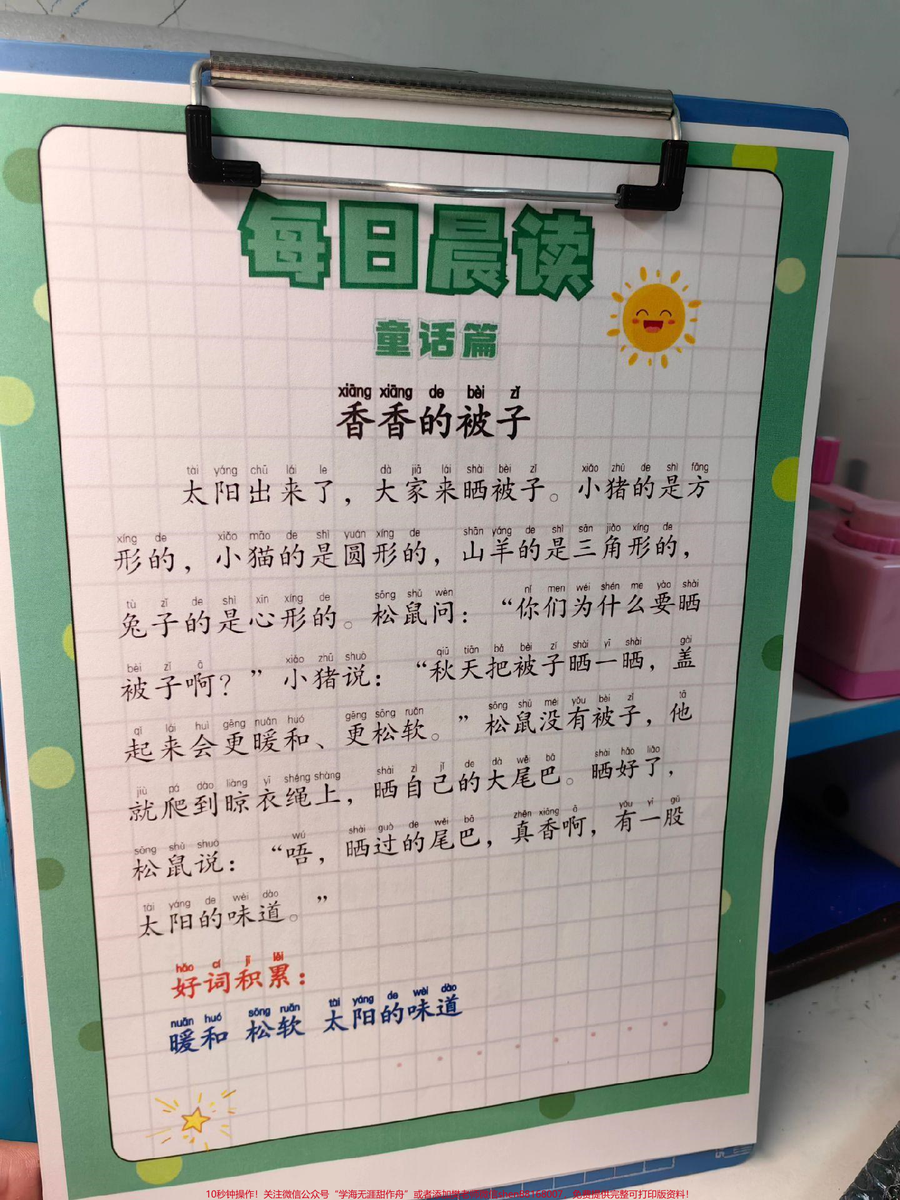 每日晨读
童话篇
xiāng xiāng de bèi zǐ
香香的被子
tài yáng chū lái le dà jiā lái shài bèi zǐ xiǎo zhū de shì fāng
太阳出来了，大家来晒被子。小猪的是方
xíng de xiǎo māo de shì yuán xíng de shān yáng de shì sān jiǎo xíng de
形的，小猫的是圆形的，山羊的是三角形的，
tù zǐ de shì xīn xíng de sōng shǔ wèn nǐ men wéi shén me yào shài
兔子的是心形的。松鼠问：“你们为什么要晒
bèi zǐ ā xiǎo zhū shuō qiū tiān bǎ bèi zǐ shài yī shài gài
被子啊？”小猪说：“秋天把被子晒一晒，盖
qǐ lái huì gèng nuǎn huó gèng sōng ruǎn sōng shǔ méi yǒu bèi zǐ tā
起来会更暖和、更松软。”松鼠没有被子，他
jiù pá dào liàng yī shéng shàng shài zì jǐ de dà wěi bā shài hǎo liǎo
就爬到晾衣绳上，晒自己的大尾巴。晒好了，
sōng shǔ shuō wú shài guò de wěi bā zhēn xiāng ā yǒu yī gǔ
松鼠说：“唔，晒过的尾巴，真香啊，有一股
tài yáng de wèi dào
太阳的味道。”
hǎo cí jī lěi
好词积累：
nuǎn huó sōng ruǎn tài yáng de wèi dào
暖和 松软 太阳的味道
10秒钟操作！关注微信公众号“学海无涯甜作舟”或者添加 免费提供完整可打印版资料！